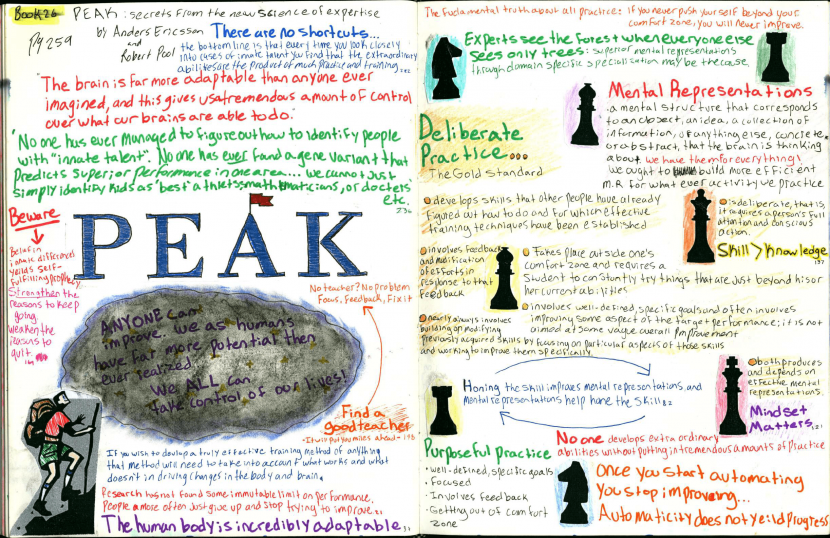 Book 26
pg 259
PEAK: secrets from the new science of expertise
by Anders Ericsson
and Robert Pool
There are no shortcuts...
the bottom line is that every time you look closely
into cases of innate talent you find that the extraordinary
abilities are the product of much practice and training
"The brain is far more adaptable than anyone ever
imagined, and this gives us a tremendous amount of control
over what our brains are able to do."
"No one has ever managed to figure out how to identify people
with "innate talent". No one has ever found a gene variant that
predicts superior performance in one area.... we cannot just
simply identify kids as best athletes mathematicians, or doctors"
etc.
236
Beware
Belief in
innate differences
yeilds self-
fulfilling prophecy
Strengthen the
reasons to keep
going
weaken the
reasons to
quit.
PEAK
No teacher? No problem
Focus, Feedback, Fix it
ANYONE can
improve. we as humans
have far more potential then
ever realized.
We ALL can
take control of our lives!
Find a
good teacher
-It will put you miles ahead-
If you wish to develop a truly effective training method of anything
that method will need to take into account what works and what
doesn't in driving changes in the body and brain.
Research has not found some immutable limit on performance.
People more often just give up and stop trying to improve.
The human body is incredibly adaptable
The fundamental truth about all practice: If you never push yourself beyond your
comfort zone, you will never improve.
Experts see the forest when everyone else
sees only trees: superior mental representations
through domain specific specialization may be the case.
Mental Representations
a mental structure that corresponds
to an object, an idea, a collection of
information, or anything else, concrete
or abstract, that the brain is thinking
about. we have them for everything!
we ought to build more efficient
M.R for what ever activity we practice
Deliberate
Practice...
The Gold Standard
develops skills that other people have already
figured out how to do and for which effective
training techniques have been established
is deliberate, that is,
it requires a person's full
attention and conscious
action.
Skill > Knowledge
involves feedback
and modification
of efforts in
response to that
feedback
Takes place outside one's
comfort zone and requires a
student to constantly try things that are just beyond his or
her current abilities
involves well-defined, specific goals and often involves
improving some aspect of the target performance; it is not
aimed at some vague overall improvement
nearly always involves
building or modifying
previously acquired skills by focusing on particular aspects of those skills
and working to improve them specifically
both produces
and depends on
effective mental
representations
Honing the skill improves mental representations and
mental representations help hone the skill 82
Mindset
Matters
Purposeful practice
· well-defined, specific goals
· Focused
· Involves feedback
· Getting out of comfort
zone
No one develops extra ordinary
abilities without putting in tremendous amounts of practice
Once you start automating
you stop improving...
Automaticity does not yeild progress